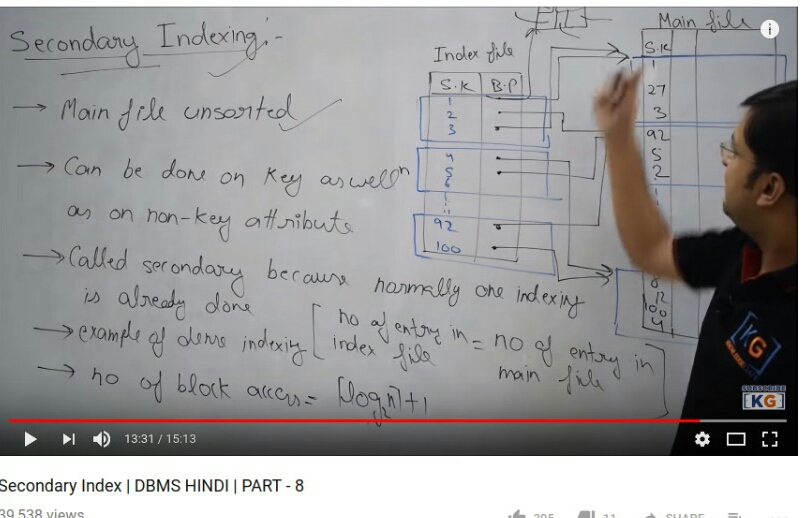 Secondary Indexing:-
→ Main file unsorted
→ Can be done on key as well
as on non-key attribute
→ Called secondary because normally one indexing
is already done
→ example of dense indexing [ no of entry in index file = no of entry in main file ]
→ no of block access = ⌈log₂n⌉+1
Index file
S.K B.P
1
2
3
4
5
6
92
100
Main file
S.K
1
27
3
92
5
2
12
100
4
KG
SUBSCRIBE
[KG]
13:31 / 15:13
Secondary Index | DBMS HINDI | PART - 8
39,538 views
395 11 SHARE